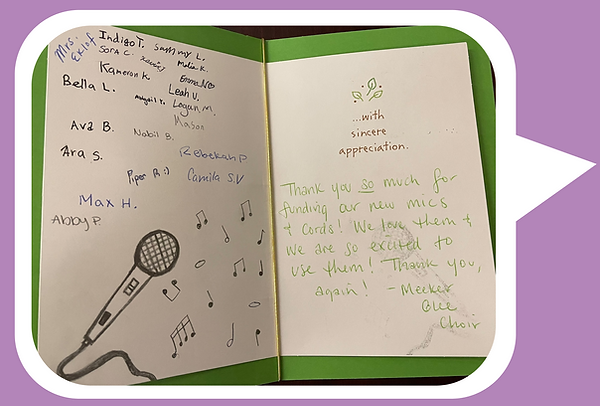 Mrs. Eklof
Indigo T. Sammy L.
Sora C. Malia K.
Kameron K. Emma N
Bella L. Leah V.
Abigail T. Logan M.
Mason
Ava B. Nabil B.
Ara S. Rebekah P
Piper R :) Camila S.V
Max H.
Abby P.
...with
sincere
appreciation.
Thank you so much for
funding our new mics
+ cords! We love them +
we are so excited to
use them! Thank you,
again! - Meeker
Glee
Choir